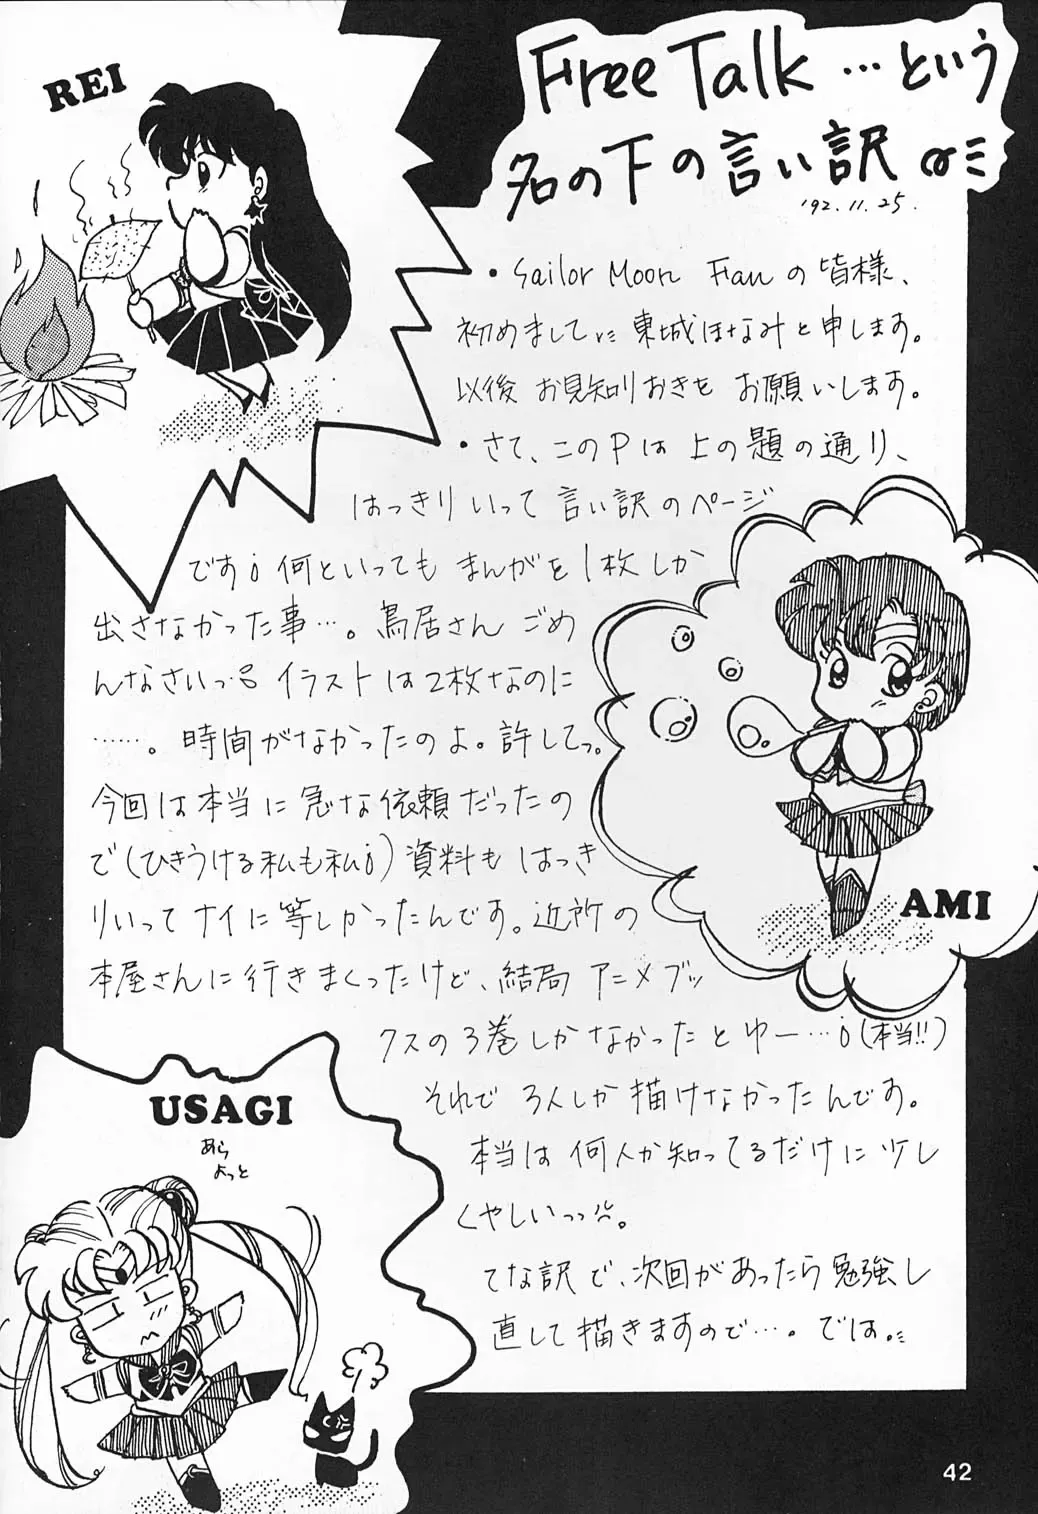 Free Talk …という
名の下の言い訳
'92.11.25.
REI
・Sailor Moon Fanの皆様、
初めまして 東城ほなみと申します。
以後 お見知りおきを お願いします。
・さて、このPは上の題の通り、
はっきりいって 言い訳のページ
です 何といっても まんがを1枚しか
出さなかった事…。鳥居さん ごめ
んなさいっ イラストは2枚なのに
……。時間がなかったのよ。許してっ。
今回は本当に急な依頼だったの
で(ひきうける私も私) 資料も はっき
りいって ナイに等しかったんです。近所の
本屋さんに行きまくったけど、結局 アニメブッ
クスの3巻しかなかったとゆー…(本当!!)
それで 3人しか描けなかったんです。
本当は 何人か知ってるだけに少し
くやしいっっ。
てな訳で、次回があったら勉強し
直して描きますので…。では。
AMI
USAGI
あら
よっと
42